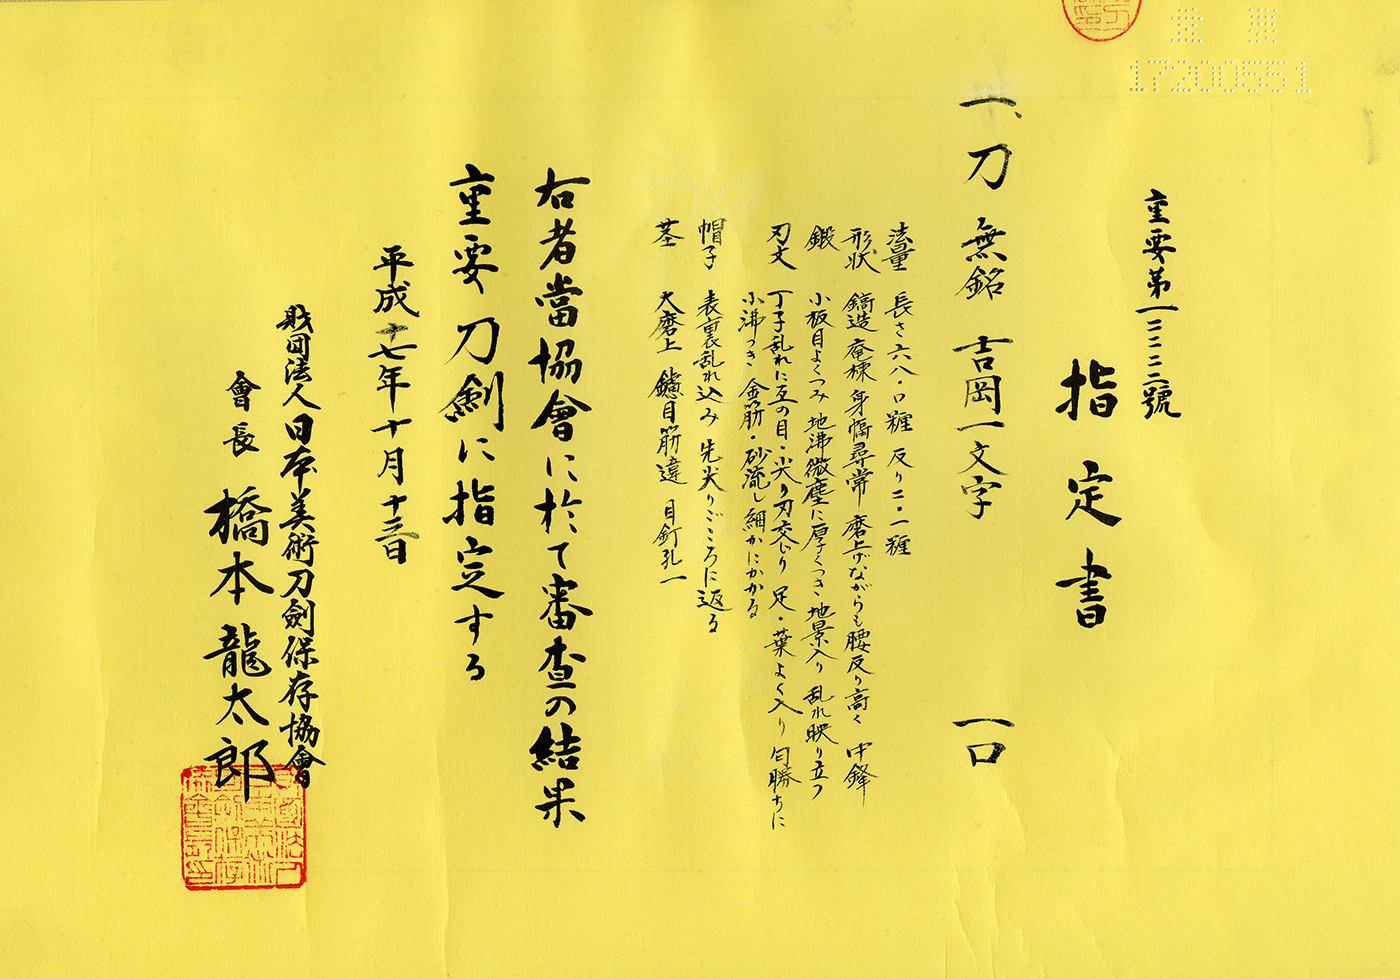 重要第一三三二號
指定書
一、刀 無銘 吉岡一文字 一口
法量 長さ六八・〇糎 反り二・一糎
形状 鎬造 庵棟 身幅尋常 磨上げながらも腰反り高く 中鋒
鍛 小板目よくつみ 地沸微塵に厚くつき 地景入り 乱れ映り立つ
刃文 丁子乱れに互の目・小尖り刃交じり 足・葉よく入り 匂勝ちに
小沸つき 金筋・砂流し細かにかかる
帽子 表裏乱れ込み 先尖りごころに返る
茎 大磨上 鑢目筋違 目釘孔一
右者當協會に於て審査の結果
重要刀劍に指定する
平成十七年十月十三日
財団法人日本美術刀劍保存協會
會長 橋本龍太郎
17200551